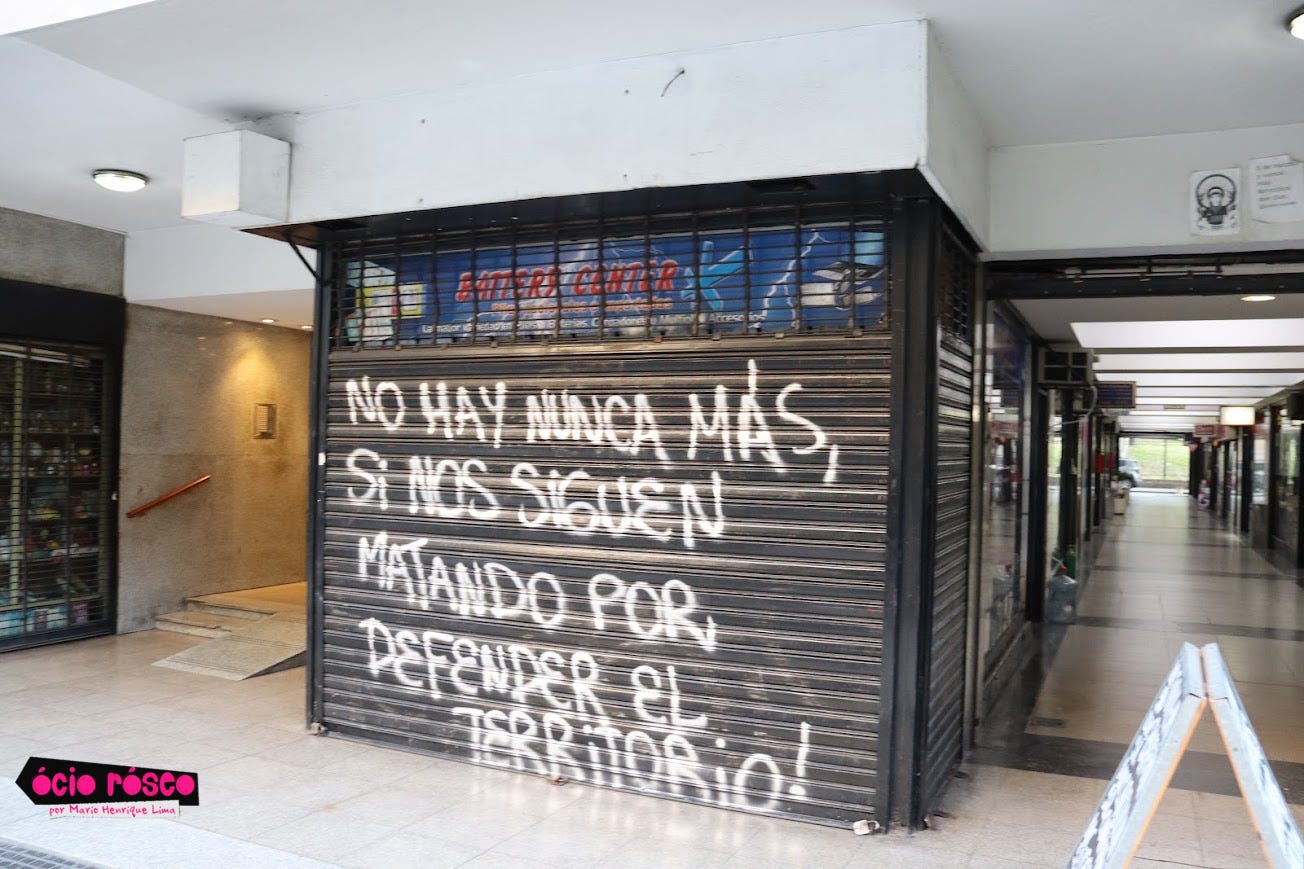 BATTERY CENTER
NO HAY NUNCA MÁS,
Si NOS SIGUEN
MATANDO POR
DEFENDER EL
TERRiTORio!
ócio róseo
por Mario Henrique Lima